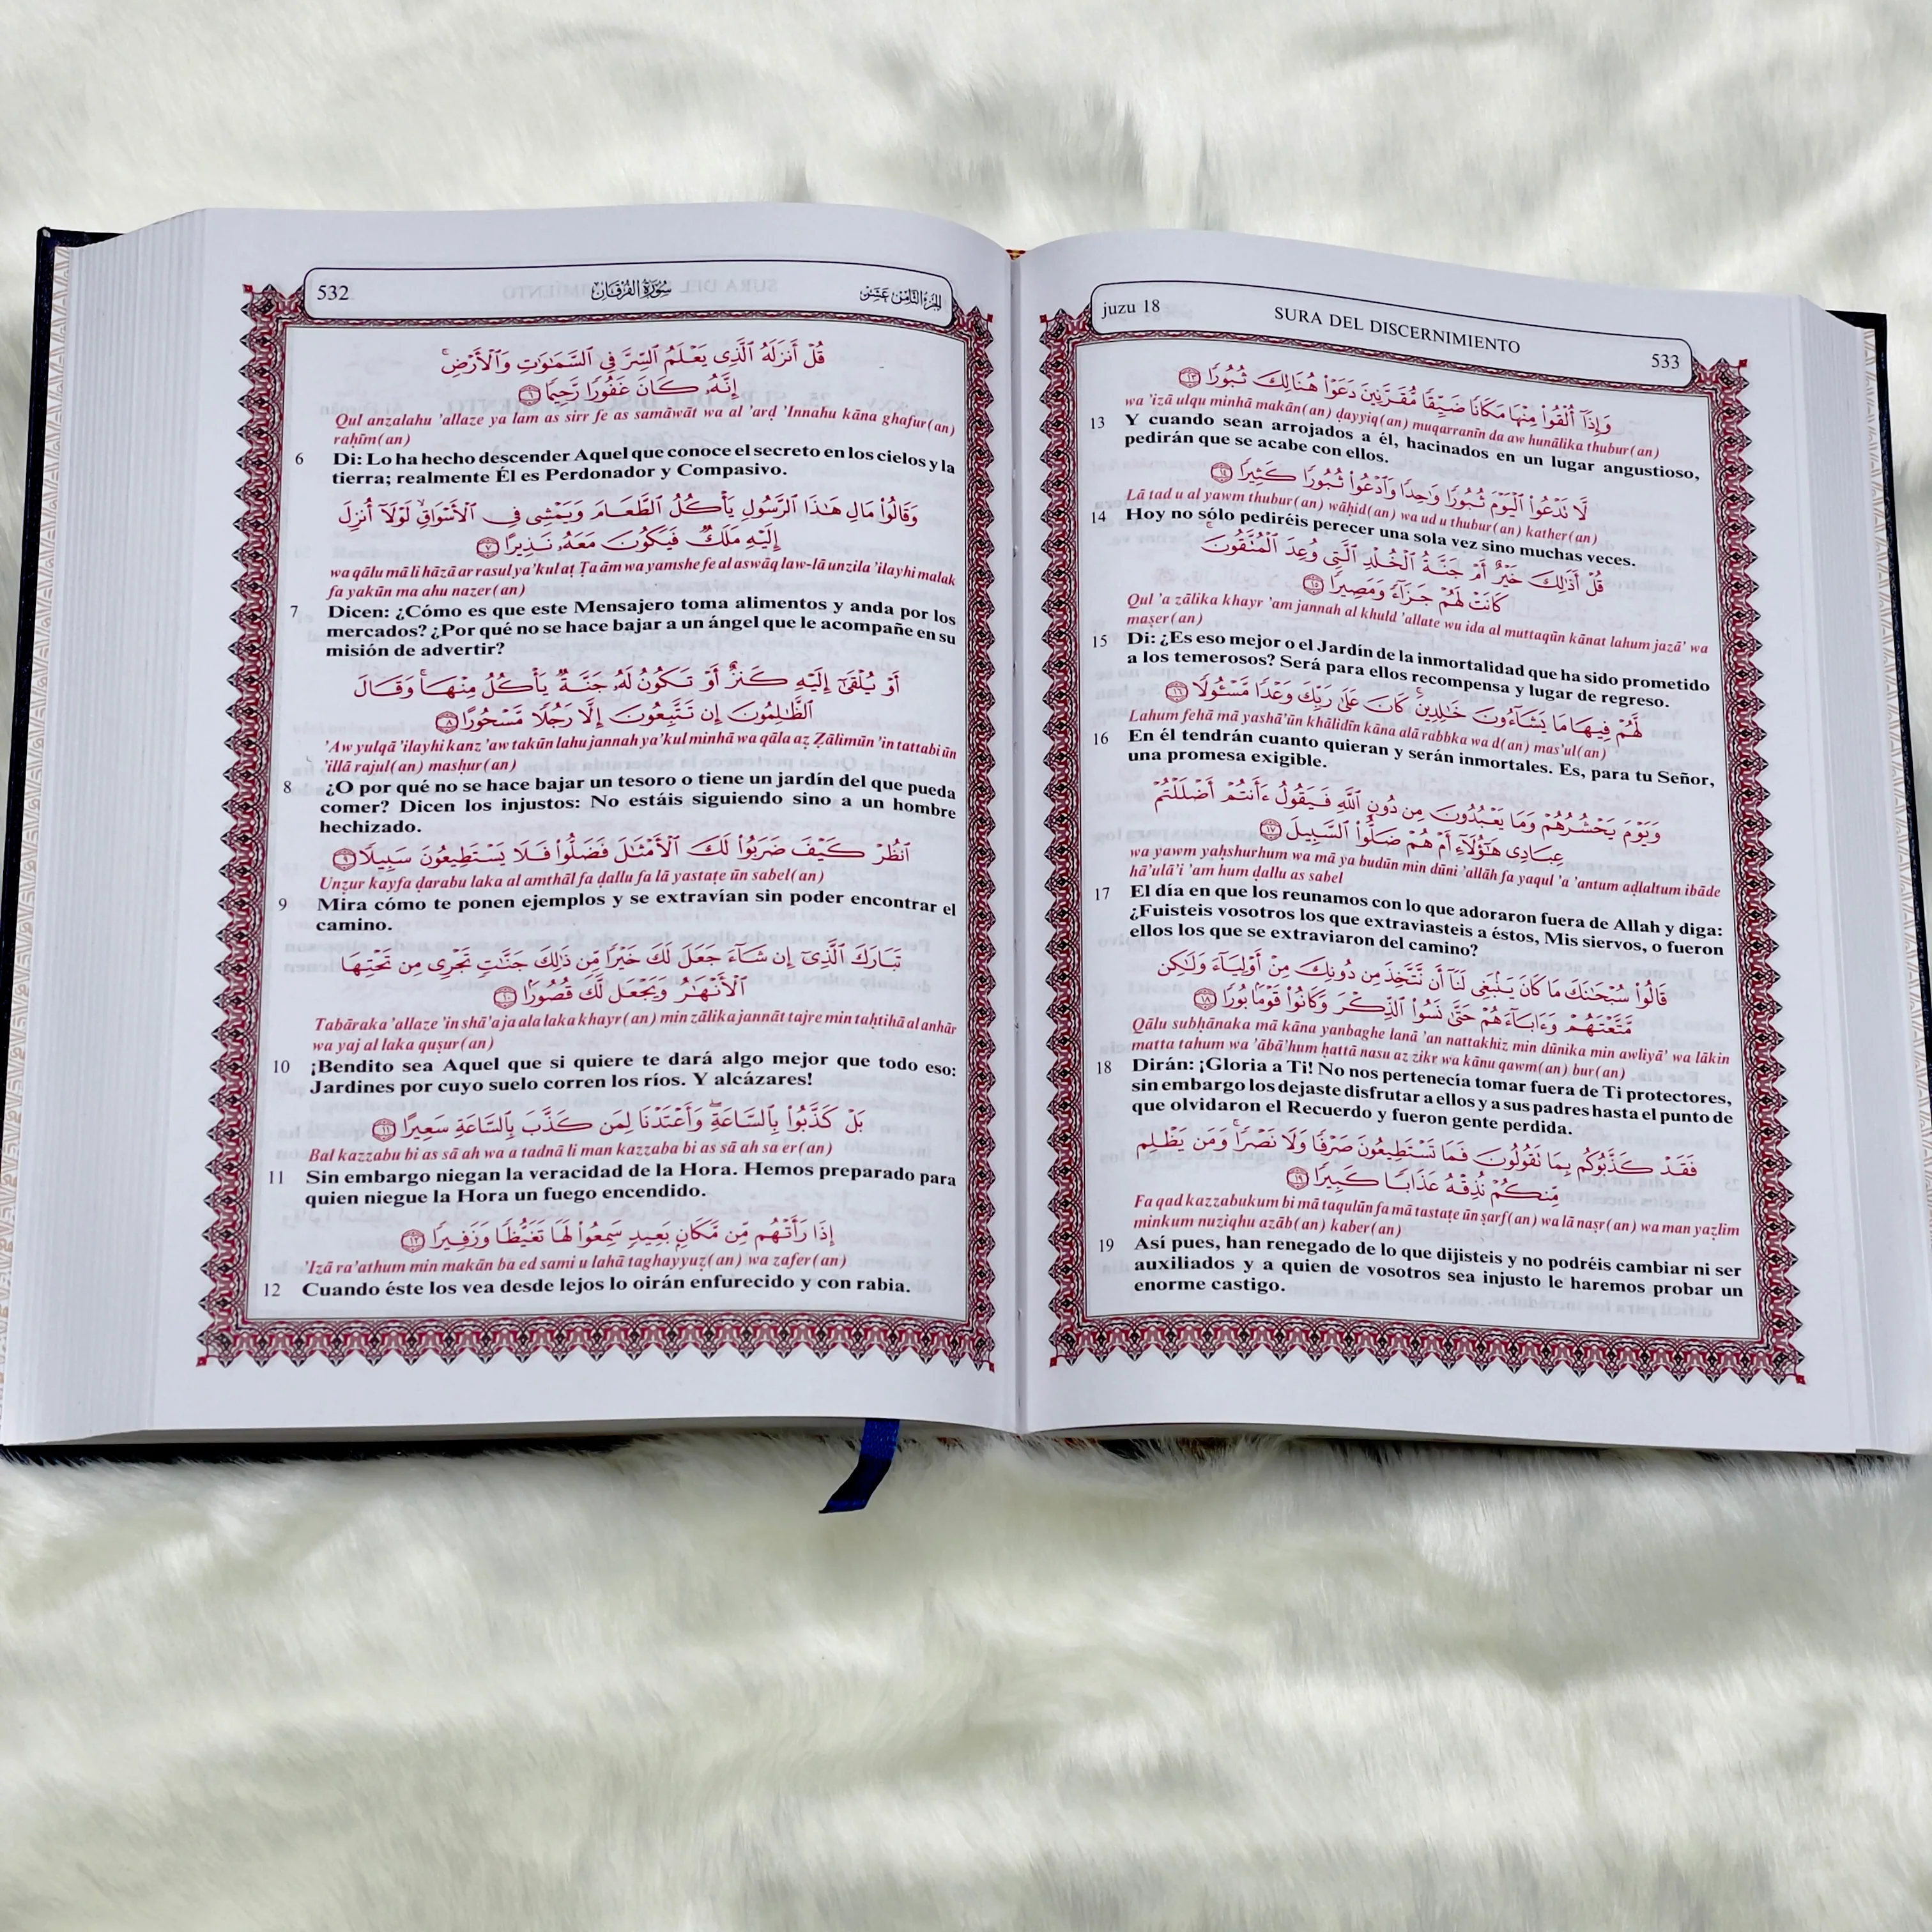 532
سُورَةُ الفُرْقَان
الجُزءُ الثَّامِن عَشَر
قُلْ أَنزَلَهُ ٱلَّذِى يَعْلَمُ ٱلسِّرَّ فِى ٱلسَّمَٰوَٰتِ وَٱلْأَرْضِ ۚ
إِنَّهُۥ كَانَ غَفُورًا رَّحِيمًا ٦
Qul anzalahu 'allaze ya lam as sirr fe as samāwāt wa al 'arḍ 'Innahu kāna ghafur(an)
raḥīm(an)
6 Di: Lo ha hecho descender Aquel que conoce el secreto en los cielos y la
tierra; realmente Él es Perdonador y Compasivo.
وَقَالُوا۟ مَالِ هَٰذَا ٱلرَّسُولِ يَأْكُلُ ٱلطَّعَامَ وَيَمْشِى فِى ٱلْأَسْوَاقِ ۙ لَوْلَآ أُنزِلَ
إِلَيْهِ مَلَكٌ فَيَكُونَ مَعَهُۥ نَذِيرًا ٧
wa qālu mā li hāzā ar rasul ya'kul aṭ Ṭa ām wa yamshe fe al aswāq law-lā unzila 'ilayhi malak
fa yakūn ma ahu nazer(an)
7 Dicen: ¿Cómo es que este Mensajero toma alimentos y anda por los
mercados? ¿Por qué no se hace bajar a un ángel que le acompañe en su
misión de advertir?
أَوْ يُلْقَىٰٓ إِلَيْهِ كَنزٌ أَوْ تَكُونُ لَهُۥ جَنَّةٌ يَأْكُلُ مِنْهَا ۚ وَقَالَ
ٱلظَّٰلِمُونَ إِن تَتَّبِعُونَ إِلَّا رَجُلًا مَّسْحُورًا ٨
'Aw yulqā 'ilayhi kanz 'aw takūn lahu jannah ya'kul minhā wa qāla aẓ Ẓālimūn 'in tattabi ūn
'illā rajul(an) masḥur(an)
8 ¿O por qué no se hace bajar un tesoro o tiene un jardín del que pueda
comer? Dicen los injustos: No estáis siguiendo sino a un hombre
hechizado.
ٱنظُرْ كَيْفَ ضَرَبُوا۟ لَكَ ٱلْأَمْثَٰلَ فَضَلُّوا۟ فَلَا يَسْتَطِيعُونَ سَبِيلًا ٩
Unẓur kayfa ḍarabu laka al amthāl fa ḍallu fa lā yastaṭe ūn sabel(an)
9 Mira cómo te ponen ejemplos y se extravían sin poder encontrar el
camino.
تَبَارَكَ ٱلَّذِىٓ إِن شَآءَ جَعَلَ لَكَ خَيْرًا مِّن ذَٰلِكَ جَنَّٰتٍ تَجْرِى مِن تَحْتِهَا
ٱلْأَنْهَٰرُ وَيَجْعَل لَّكَ قُصُورًۢا ١٠
Tabāraka 'allaze 'in shā'a ja ala laka khayr(an) min zālika jannāt tajre min taḥtihā al anhār
wa yaj al laka quṣur(an)
10 ¡Bendito sea Aquel que si quiere te dará algo mejor que todo eso:
Jardines por cuyo suelo corren los ríos. Y alcázares!
بَلْ كَذَّبُوا۟ بِٱلسَّاعَةِ ۖ وَأَعْتَدْنَا لِمَن كَذَّبَ بِٱلسَّاعَةِ سَعِيرًا ١١
Bal kazzabu bi as sā ah wa a tadnā li man kazzaba bi as sā ah sa er(an)
11 Sin embargo niegan la veracidad de la Hora. Hemos preparado para
quien niegue la Hora un fuego encendido.
إِذَا رَأَتْهُم مِّن مَّكَانٍۭ بَعِيدٍ سَمِعُوا۟ لَهَا تَغَيُّظًا وَزَفِيرًا ١٢
'Izā ra'athum min makān ba ed sami u lahā taghayyuẓ(an) wa zafer(an)
12 Cuando éste los vea desde lejos lo oirán enfurecido y con rabia.
juzu 18
SURA DEL DISCERNIMIENTO
533
وَإِذَآ أُلْقُوا۟ مِنْهَا مَكَانًا ضَيِّقًا مُّقَرَّنِينَ دَعَوْا۟ هُنَالِكَ ثُبُورًا ١٣
wa 'izā ulqu minhā makān(an) ḍayyiq(an) muqarranīn da aw hunālika thubur(an)
13 Y cuando sean arrojados a él, hacinados en un lugar angustioso,
pedirán que se acabe con ellos.
لَّا تَدْعُوا۟ ٱلْيَوْمَ ثُبُورًا وَٰحِدًا وَٱدْعُوا۟ ثُبُورًا كَثِيرًا ١٤
Lā tad u al yawm thubur(an) wāḥid(an) wa ud u thubur(an) kather(an)
14 Hoy no sólo pediréis perecer una sola vez sino muchas veces.
قُلْ أَذَٰلِكَ خَيْرٌ أَمْ جَنَّةُ ٱلْخُلْدِ ٱلَّتِى وُعِدَ ٱلْمُتَّقُونَ ۚ
كَانَتْ لَهُمْ جَزَآءً وَمَصِيرًا ١٥
Qul 'a zālika khayr 'am jannah al khuld 'allate wu ida al muttaqūn kānat lahum jazā' wa
maṣer(an)
15 Di: ¿Es eso mejor o el Jardín de la inmortalidad que ha sido prometido
a los temerosos? Será para ellos recompensa y lugar de regreso.
لَّهُمْ فِيهَا مَا يَشَآءُونَ خَٰلِدِينَ ۚ كَانَ عَلَىٰ رَبِّكَ وَعْدًا مَّسْـُٔولًا ١٦
Lahum fehā mā yashā'ūn khālidīn kāna alā rabbka wa d(an) mas'ul(an)
16 En él tendrán cuanto quieran y serán inmortales. Es, para tu Señor,
una promesa exigible.
وَيَوْمَ يَحْشُرُهُمْ وَمَا يَعْبُدُونَ مِن دُونِ ٱللَّهِ فَيَقُولُ ءَأَنتُمْ أَضْلَلْتُمْ
عِبَادِى هَٰٓؤُلَآءِ أَمْ هُمْ ضَلُّوا۟ ٱلسَّبِيلَ ١٧
wa yawm yaḥshurhum wa mā ya budūn min dūni 'allāh fa yaqul 'a 'antum aḍlaltum ibāde
hā'ulā'i 'am hum ḍallu as sabel
17 El día en que los reunamos con lo que adoraron fuera de Allah y diga:
¿Fuisteis vosotros los que extraviasteis a éstos, Mis siervos, o fueron
ellos los que se extraviaron del camino?
قَالُوا۟ سُبْحَٰنَكَ مَا كَانَ يَنۢبَغِى لَنَآ أَن نَّتَّخِذَ مِن دُونِكَ مِنْ أَوْلِيَآءَ وَلَٰكِن
مَّتَّعْتَهُمْ وَءَابَآءَهُمْ حَتَّىٰ نَسُوا۟ ٱلذِّكْرَ وَكَانُوا۟ قَوْمًۢا بُورًا ١٨
Qālu subḥānaka mā kāna yanbaghe lanā 'an nattakhiz min dūnika min awliyā' wa lākin
matta tahum wa 'ābā'hum ḥattā nasu az zikr wa kānu qawm(an) bur(an)
18 Dirán: ¡Gloria a Ti! No nos pertenecía tomar fuera de Ti protectores,
sin embargo los dejaste disfrutar a ellos y a sus padres hasta el punto de
que olvidaron el Recuerdo y fueron gente perdida.
فَقَدْ كَذَّبُوكُم بِمَا تَقُولُونَ فَمَا تَسْتَطِيعُونَ صَرْفًا وَلَا نَصْرًا ۚ وَمَن يَظْلِم
مِّنكُمْ نُذِقْهُ عَذَابًا كَبِيرًا ١٩
Fa qad kazzabukum bi mā taqulūn fa mā tastaṭe ūn ṣarf(an) wa lā naṣr(an) wa man yaẓlim
minkum nuziqhu azāb(an) kaber(an)
19 Así pues, han renegado de lo que dijisteis y no podréis cambiar ni ser
auxiliados y a quien de vosotros sea injusto le haremos probar un
enorme castigo.